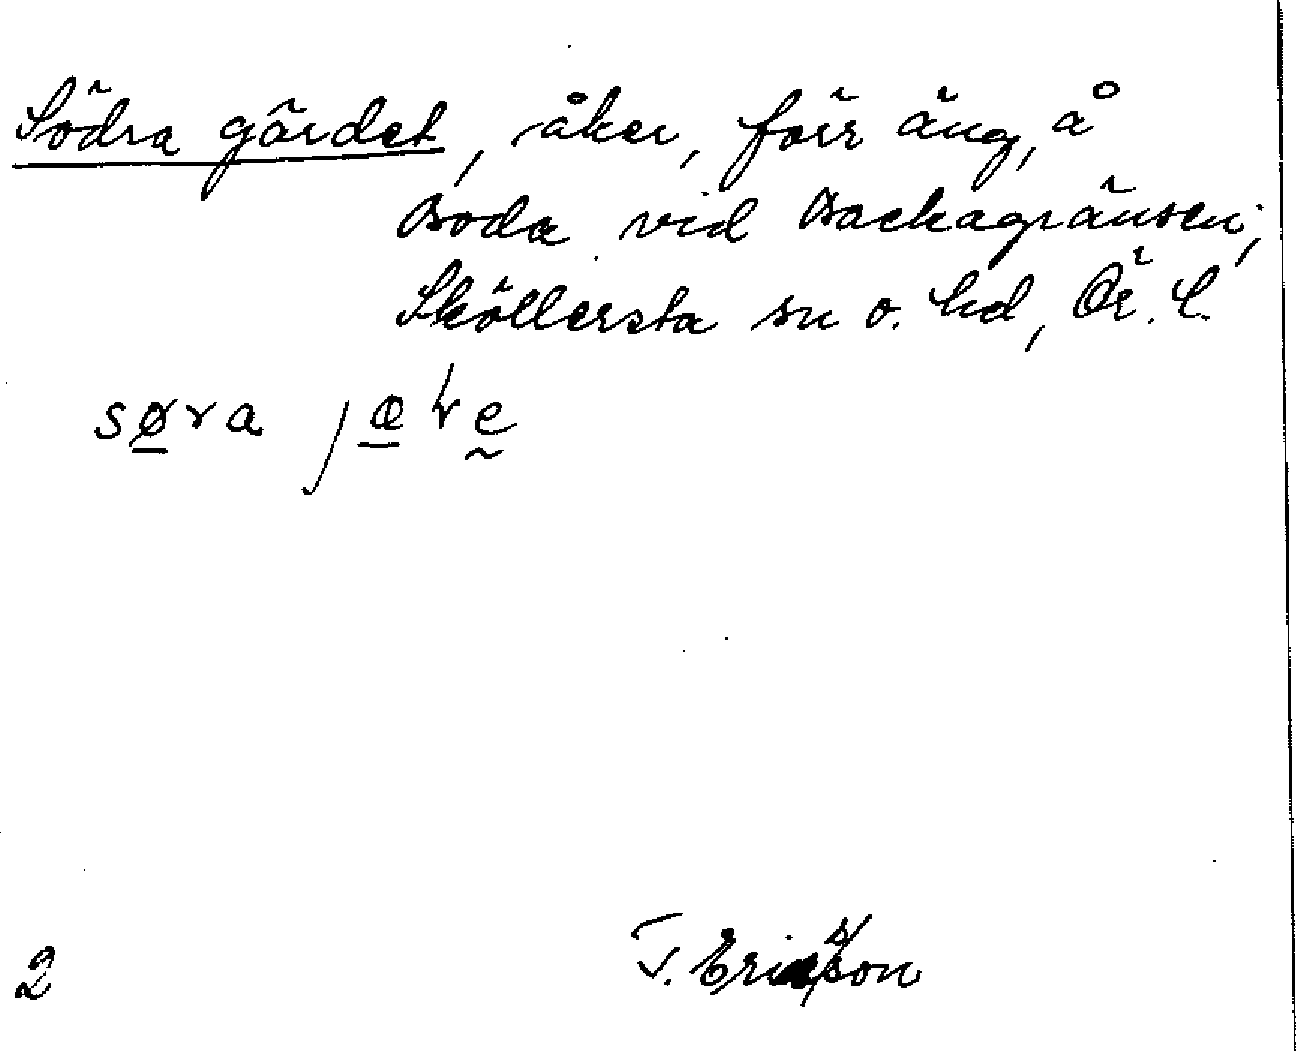 Södra gärdet, åker, förr äng, å
Boda vid Backagränsen,
Sköllersta sn o. hd, Ör. l.
søra
2 T. Ericsson